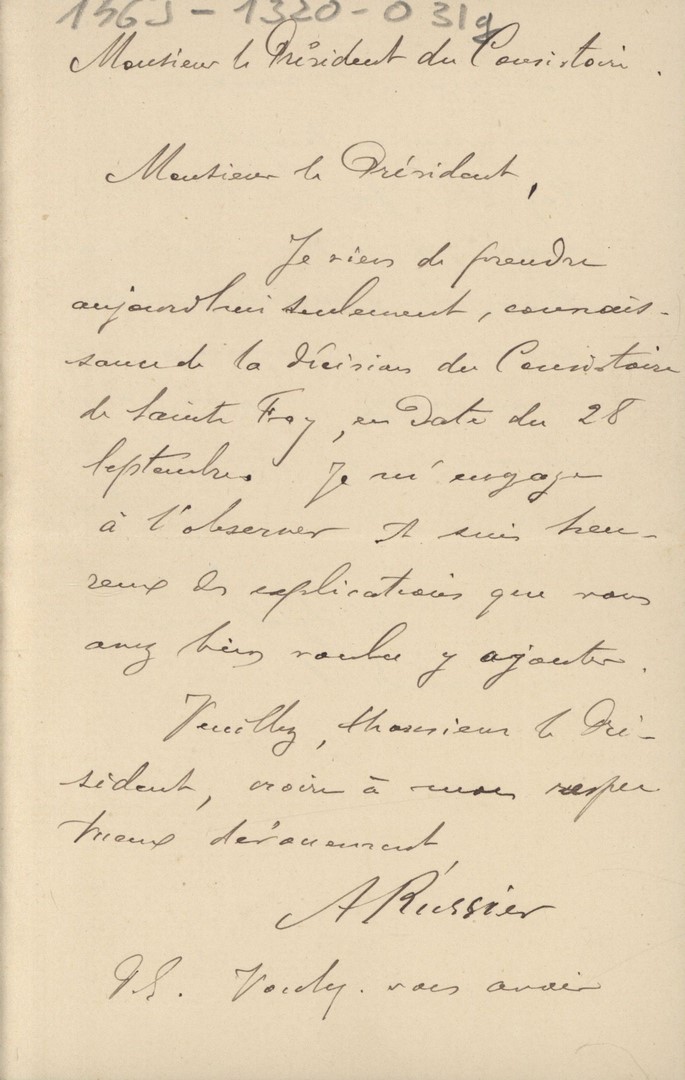 1365-1320-031g
Monsieur le Président du Consistoire.
Monsieur le Président,
Je viens de prendre
aujourd'hui seulement, connais-
sance de la décision du Consistoire
de Sainte Foy, en date du 28
Septembre. Je m'engage
à l'observer et suis heu-
reux des explications que vous
avez bien voulu y ajouter.
Veuillez, Monsieur le Pré-
sident, croire à mon respec
tueux dévouement
A Russier
PS. avoir